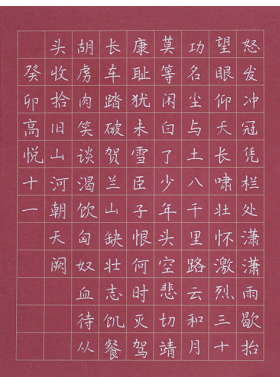 怒发冲冠凭栏处潇潇雨歇抬
望眼仰天长啸壮怀激烈三十
功名尘与土八千里路云和月
莫等闲白了少年头空悲切靖
康耻犹未雪臣子恨何时灭驾
长车踏破贺兰山缺壮志饥餐
胡虏肉笑谈渴饮匈奴血待从
头收拾旧山河朝天阙
癸卯高悦十一